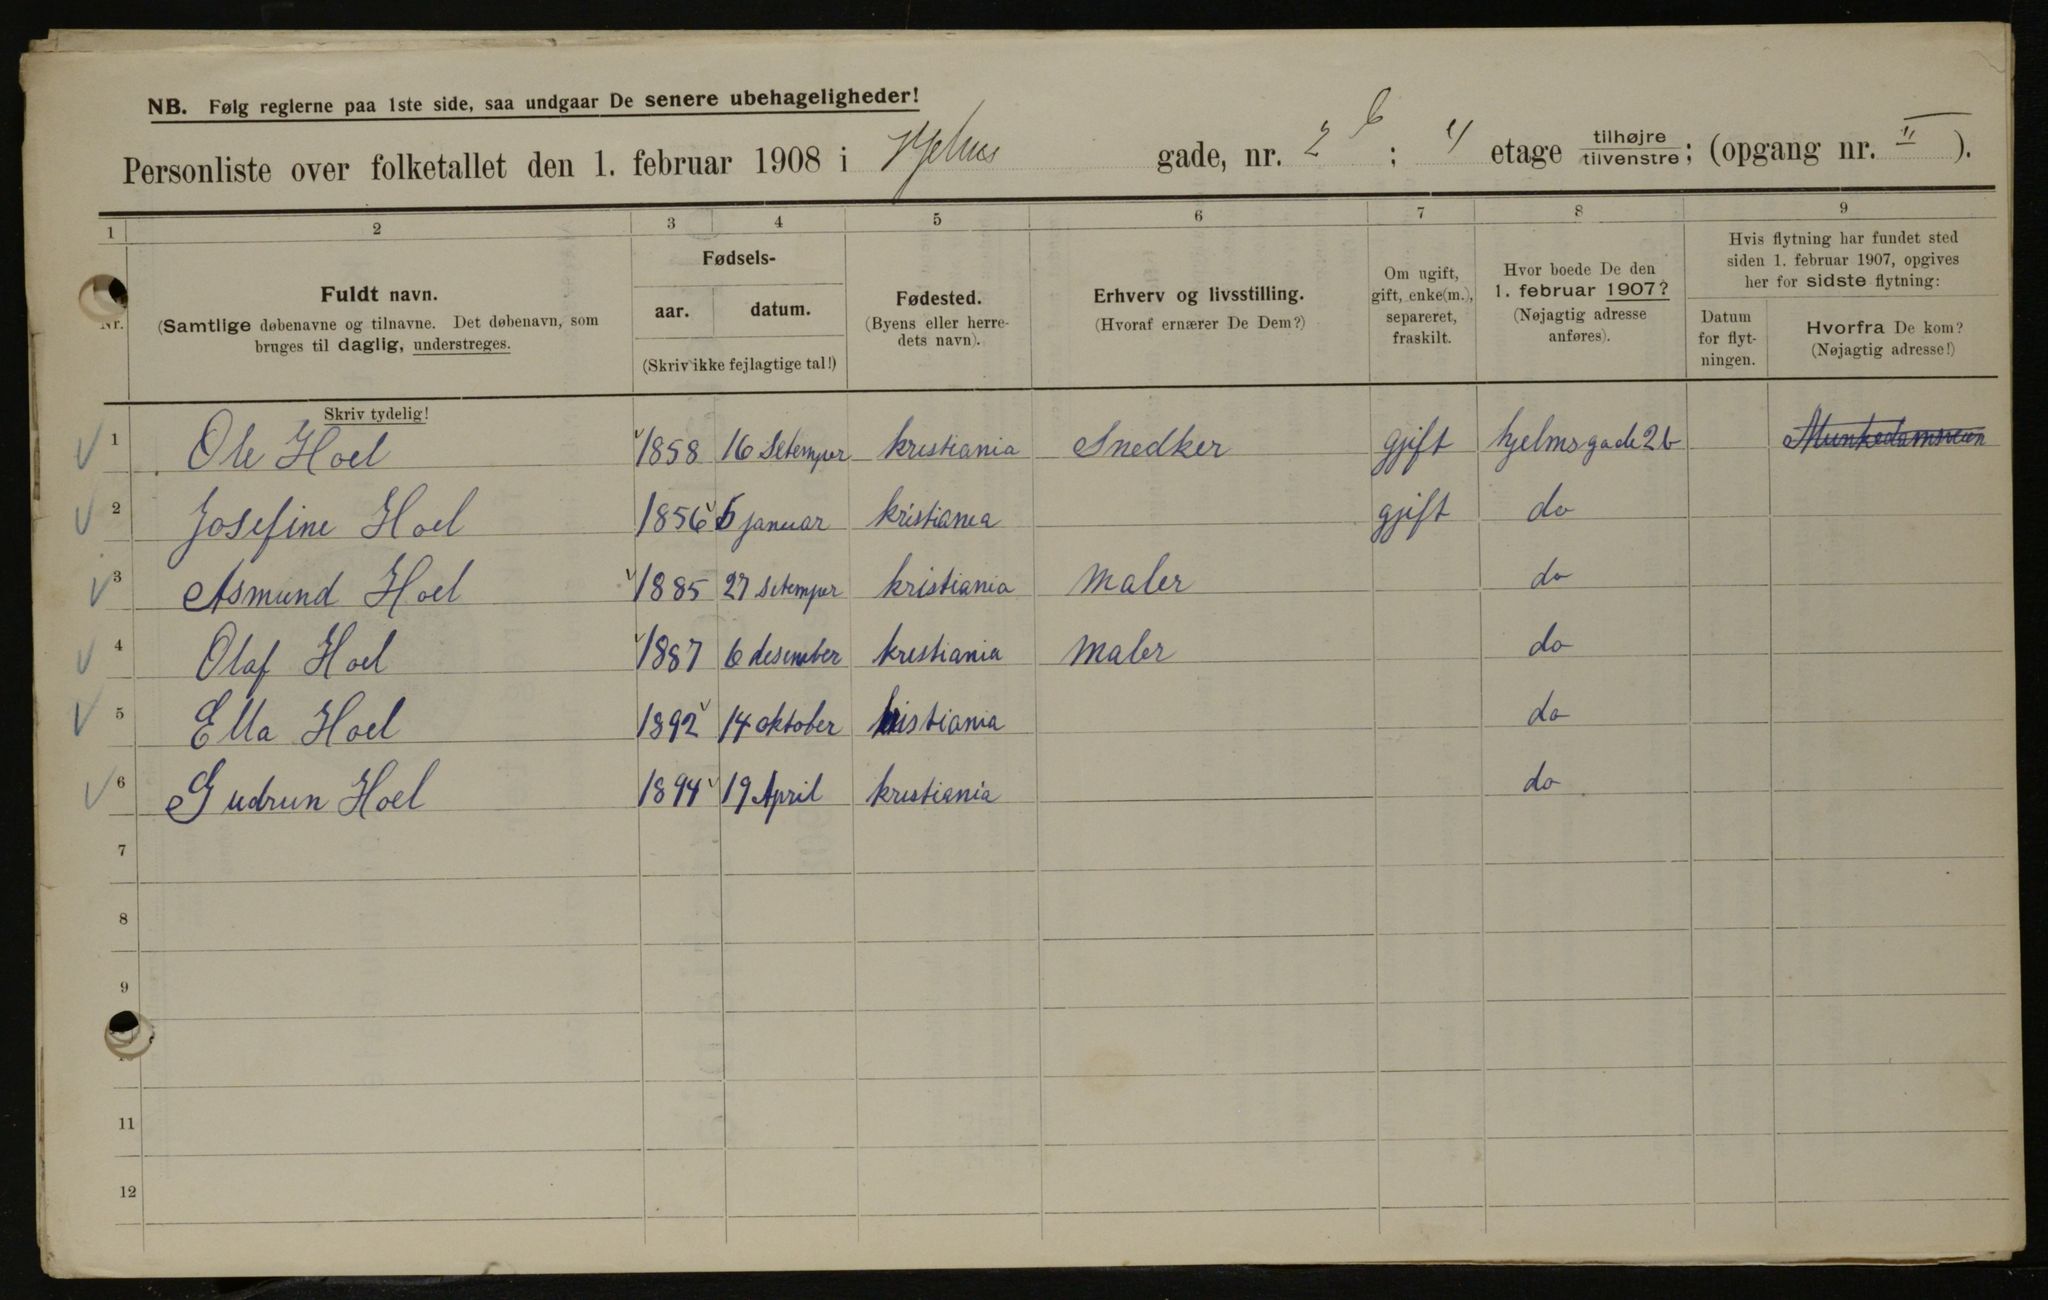 NB. Følg reglerne paa 1ste side, saa undgaar De senere ubehageligheder!
Personliste over folketallet den 1. februar 1908 i Hjelms gade, nr. 2 b ; 4 etage tilhøjre/tilvenstre; (opgang nr. II ).
1 2 3 4 5 6 7 8 9
Nr.
Fuldt navn.
(Samtlige døbenavne og tilnavne. Det døbenavn, som
bruges til daglig, understreges.
Skriv tydelig!
Fødsels-
aar. datum.
(Skriv ikke fejlagtige tal!)
Fødested.
(Byens eller herre-
dets navn).
Erhverv og livsstilling.
(Hvoraf ernærer De Dem?)
Om ugift,
gift, enke(m.),
separeret,
fraskilt.
Hvor boede De den
1. februar 1907?
(Nøjagtig adresse
anføres).
Hvis flytning har fundet sted
siden 1. februar 1907, opgives
her for sidste flytning:
Datum
for flyt-
ningen.
Hvorfra De kom?
(Nøjagtig adresse!)
1 Ole Hoel 1858 16 Setemper kristiania Snedker gjift hjelmsgade 2b Munkedamsveien
2 Josefine Hoel 1856 5 januar kristiania gjift do
3 Asmund Hoel 1885 27 Setemper kristiania Maler do
4 Olaf Hoel 1887 6 desember kristiania Maler do
5 Ella Hoel 1892 14 oktober kristiania do
6 Gudrun Hoel 1894 19 April kristiania do
7
8
9
10
11
12